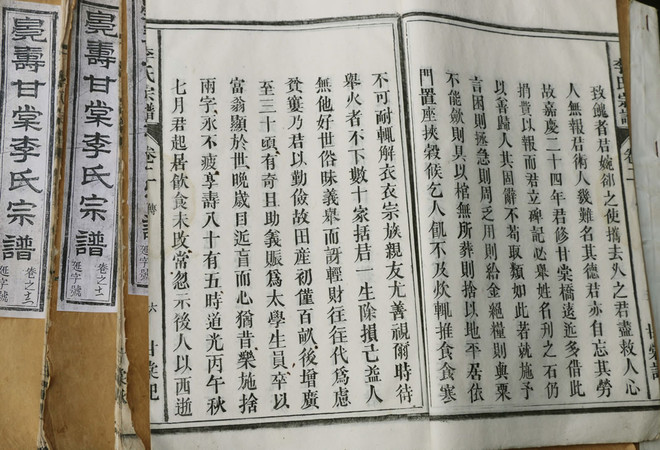 致餽者君婉卻之使攜去久之君盡救人心
人無報君術人幾難名其德君亦自忘其勞
故嘉慶二十四年君修甘棠橋遠近多借此
捐費以報而君立碑記必舉姓名刊之石仍
以善歸人其固辭不苟取類如此者就施予
言困則拯急則周乏用則給金絕糧則與粟
不能斂則具以棺無所葬則捨以地平居依
門置座挾穀候乞人飢不及炊輒推食食寒
不可耐輒解衣衣宗族親友尤善視爾時待
舉火者不下數十家括君一生除損己益人
無他好世俗昧義舉而訝輕財往往代為慮
貧窶乃君以勤儉故田產初僅百畝後增廣
至三十頃有奇且助義賑為太學生員卒以
富翁顯於世晚歲目近盲而心猶昔樂施捨
兩字永不疲享壽八十有五時道光丙午秋
七月君起居飲食未改常忽示後人以西逝
李氏宗譜 卷二 傳 六 甘棠
壽甘棠李氏宗譜
卷之 字號
壽甘棠李氏宗譜
卷之 字號